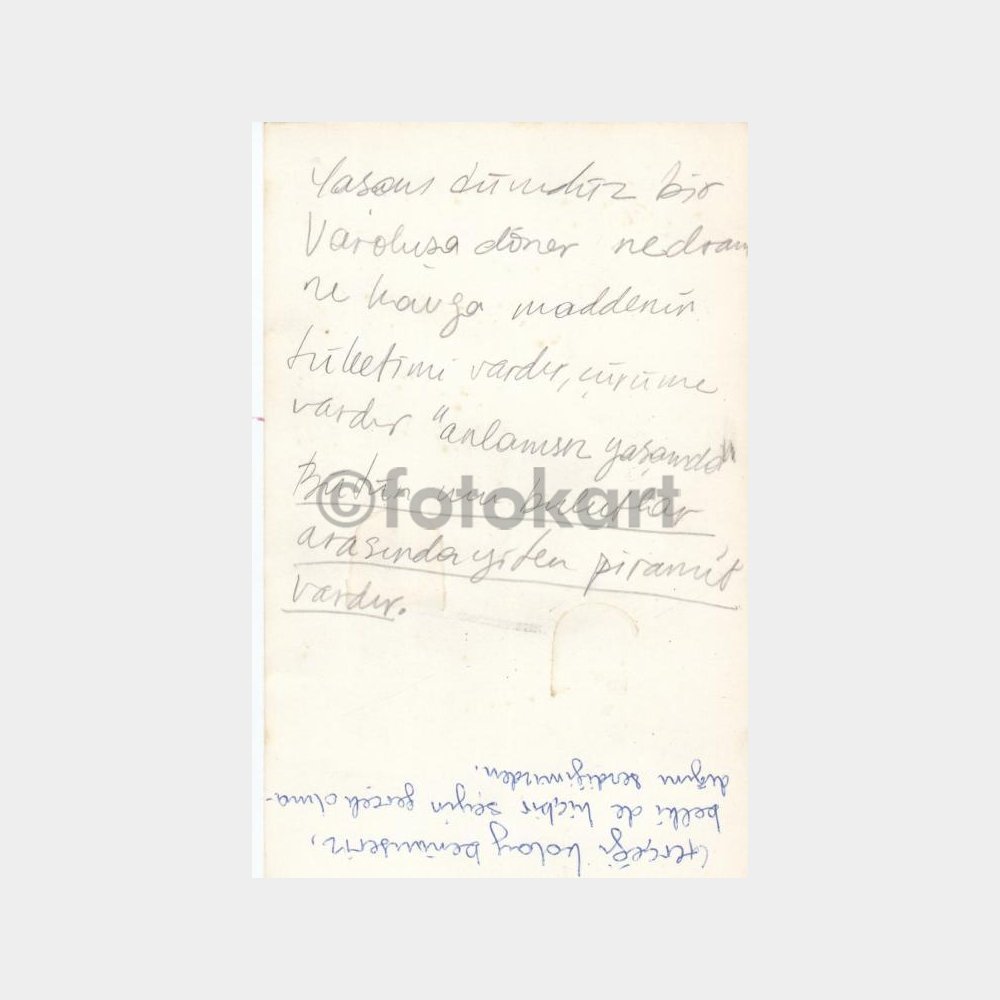 Yaşam dümdüz bir
Varoluşa döner ne dram
ne kavga maddenin
tüketimi vardır, çürüme
vardır "anlamsız yaşamda"
Bütün bulutlar
arasında yiten piramit
vardır.
©fotokart
Gerçeği kolay benimseriz,
belki de hiçbir şeyin gerçek olma-
dığını sezdiğimizden.